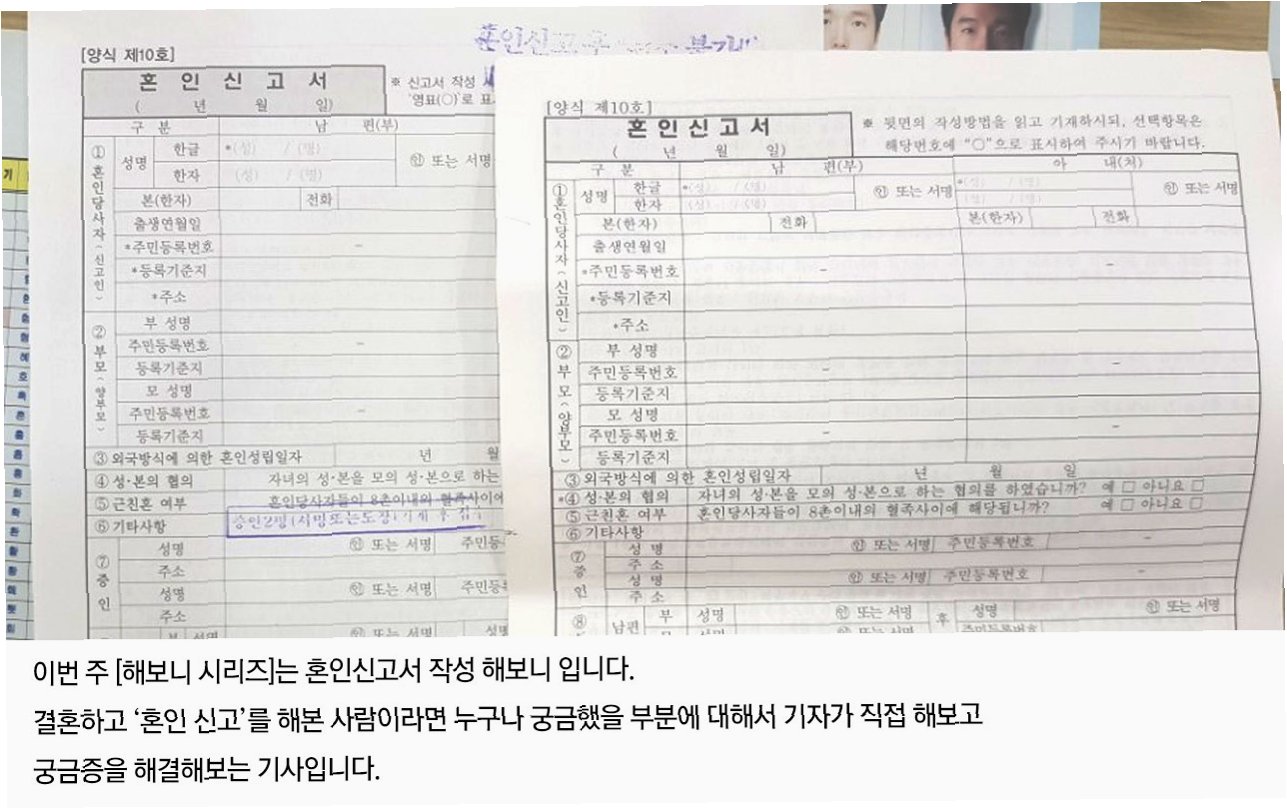 [양식 제10호]
혼인신고서
( 년 월 일)
※ 신고서 작성
'영표(○)'로 표
구 분 남 편(부)
①혼인당사자(신고인)
성명 한글 *(성) / (명) ㊞ 또는 서명
한자 (성) / (명)
본(한자) 전화
출생연월일
*주민등록번호 -
*등록기준지
*주소
②부모(양부모)
부 성명
주민등록번호 -
등록기준지
모 성명
주민등록번호 -
등록기준지
③외국방식에 의한 혼인성립일자 년 월
④성·본의 협의 자녀의 성·본을 모의 성·본으로 하는
⑤근친혼 여부 혼인당사자들이 8촌이내의 혈족사이에
⑥기타사항
증인2명(서명또는도장)기재 후 접수
⑦증인
성명 ㊞ 또는 서명 주민등
주소
성명 ㊞ 또는 서명 주민등
주소
부 성명 ㊞ 또는 서명 성명
혼인신고 후
[양식 제10호]
혼인신고서
( 년 월 일)
※ 뒷면의 작성방법을 읽고 기재하시되, 선택항목은
해당번호에 "○"으로 표시하여 주시기 바랍니다.
구 분 남 편(부) 아 내(처)
①혼인당사자(신고인)
성명 한글 *(성) / (명) ㊞ 또는 서명 *(성) / (명) ㊞ 또는 서명
한자 (성) / (명) (성) / (명)
본(한자) 전화 본(한자) 전화
출생연월일
*주민등록번호 - -
*등록기준지
*주소
②부모(양부모)
부 성명
주민등록번호 - -
등록기준지
모 성명
주민등록번호 - -
등록기준지
③외국방식에 의한 혼인성립일자 년 월 일
*④성·본의 협의 자녀의 성·본을 모의 성·본으로 하는 협의를 하였습니까? 예 □ 아니요 □
⑤근친혼 여부 혼인당사자들이 8촌이내의 혈족사이에 해당됩니까? 예 □ 아니요 □
⑥기타사항
⑦증인
성 명 ㊞ 또는 서명 주민등록번호 -
주 소
성 명 ㊞ 또는 서명 주민등록번호 -
주 소
⑧ 남편 부 성명 ㊞ 또는 서명 후 성명 ㊞ 또는 서명
모 성명 ㊞ 또는 서명 주민등록번호
이번 주 [해보니 시리즈]는 혼인신고서 작성 해보니 입니다.
결혼하고 ‘혼인 신고’를 해본 사람이라면 누구나 궁금했을 부분에 대해서 기자가 직접 해보고
궁금증을 해결해보는 기사입니다.